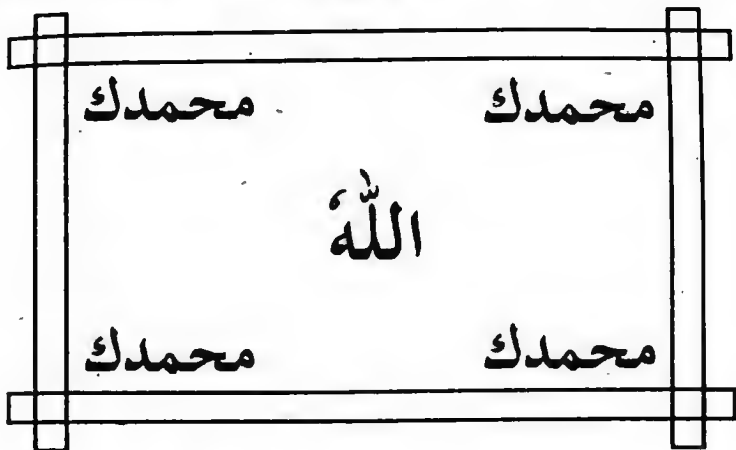 محمدك محمدك
اللهُ
محمدك محمدك